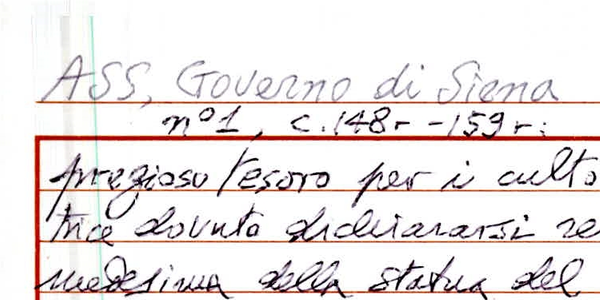 ASS, Governo di Siena
n° 1, c. 148r - 159r:
prezioso tesoro per i culto
trice dovuto dichiararsi re
medesima della statua del